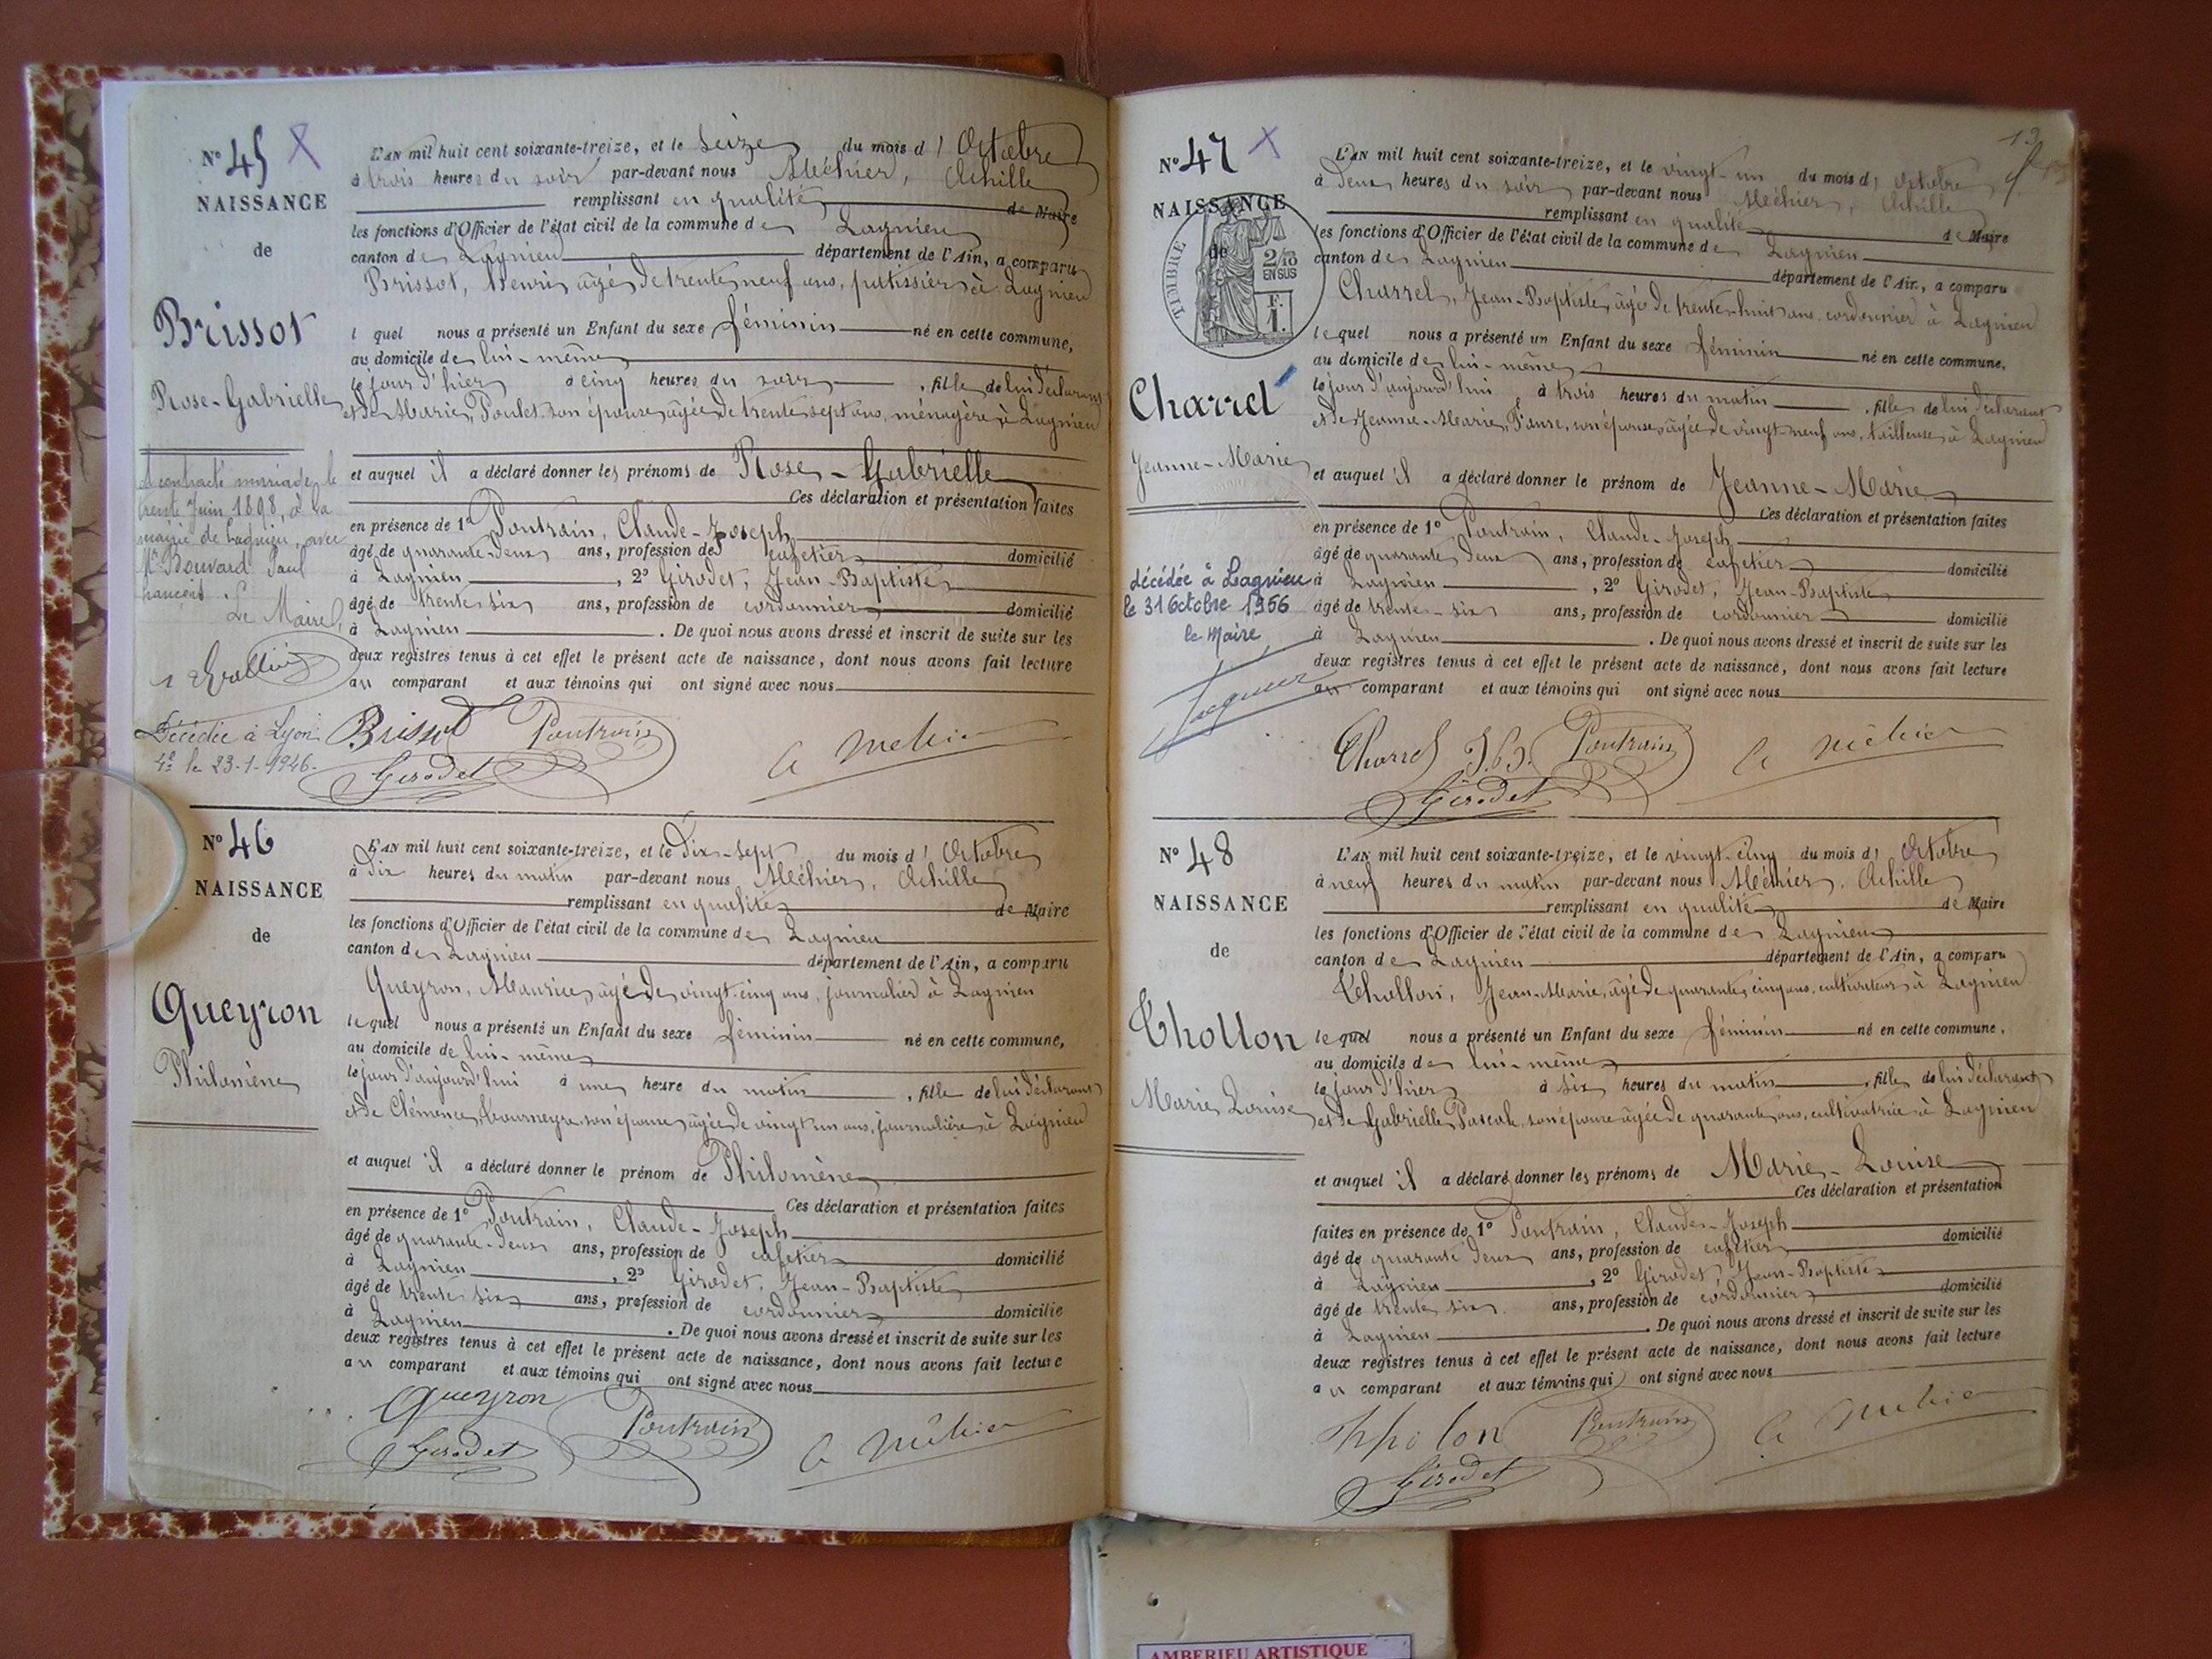 N° 45 X
NAISSANCE
de
Brissot
Rose-Gabrielle
a contracté mariage le
trente Juin 1898, à la
mairie de Lagnieu, avec
Mr Bouvard Paul
Le Maire,
Décédée à Lyon
4e le 23-1-1946.
L'AN mil huit cent soixante-treize, et le seize du mois d'Octobre
à trois heures du soir par-devant nous Méhier, Achille
remplissant en qualité de Maire
les fonctions d'Officier de l'état civil de la commune de Lagnieu
canton de Lagnieu département de l'Ain, a comparu
Brissot, Henri, âgé de trente neuf ans, patissier à Lagnieu
lequel nous a présenté un Enfant du sexe féminin né en cette commune,
au domicile de lui-même
le jour d'hier à cinq heures du soir, fille de lui déclarant
et de Marie Poulet son épouse, âgée de trente sept ans, ménagère à Lagnieu
et auquel il a déclaré donner les prénoms de Rose-Gabrielle
Ces déclaration et présentation faites
en présence de 1° Poutrain, Claude-Joseph
âgé de quarante-deux ans, profession de cafetier domicilié
à Lagnieu, 2° Girodet, Jean-Baptiste
âgé de trente six ans, profession de cordonnier domicilié
à Lagnieu. De quoi nous avons dressé et inscrit de suite sur les
deux registres tenus à cet effet le présent acte de naissance, dont nous avons fait lecture
au comparant et aux témoins qui ont signé avec nous
Brissot Poutrain
Girodet A Méhier
N° 46
NAISSANCE
de
Queyron
Philomène
L'AN mil huit cent soixante-treize, et le dix-sept du mois d'Octobre
à dix heures du matin par-devant nous Méhier, Achille
remplissant en qualité de Maire
les fonctions d'Officier de l'état civil de la commune de Lagnieu
canton de Lagnieu département de l'Ain, a comparu
Queyron, Maurice, âgé de vingt-cinq ans, journalier à Lagnieu
lequel nous a présenté un Enfant du sexe féminin né en cette commune,
au domicile de lui-même
le jour d'aujourd'hui à une heure du matin, fille de lui déclarant
et de Clémence son épouse, âgée de vingt un ans, journalière à Lagnieu
et auquel il a déclaré donner le prénom de Philomène
Ces déclaration et présentation faites
en présence de 1° Poutrain, Claude-Joseph
âgé de quarante-deux ans, profession de cafetier domicilié
à Lagnieu, 2° Girodet, Jean-Baptiste
âgé de trente six ans, profession de cordonnier domicilié
à Lagnieu. De quoi nous avons dressé et inscrit de suite sur les
deux registres tenus à cet effet le présent acte de naissance, dont nous avons fait lecture
au comparant et aux témoins qui ont signé avec nous
Queyron Poutrain
Girodet A Méhier
13
N° 47 X
NAISSANCE
de
TIMBRE
2/10
EN SUS
F.
1.
Charrel
Jeanne-Marie
décédée à Lagnieu
le 31 Octobre 1956
le Maire,
L'AN mil huit cent soixante-treize, et le vingt-un du mois d'Octobre
à deux heures du soir par-devant nous Méhier, Achille
remplissant en qualité de Maire
les fonctions d'Officier de l'état civil de la commune de Lagnieu
canton de Lagnieu département de l'Ain, a comparu
Charrel, Jean-Baptiste, âgé de trente-huit ans, cordonnier à Lagnieu
lequel nous a présenté un Enfant du sexe féminin né en cette commune,
au domicile de lui-même
le jour d'aujourd'hui à trois heures du matin, fille de lui déclarant
et de Jeanne-Marie Faure, son épouse, âgée de vingt neuf ans, tailleuse à Lagnieu
et auquel il a déclaré donner le prénom de Jeanne-Marie
Ces déclaration et présentation faites
en présence de 1° Poutrain, Claude-Joseph
âgé de quarante deux ans, profession de cafetier domicilié
à Lagnieu, 2° Girodet, Jean-Baptiste
âgé de trente-six ans, profession de cordonnier domicilié
à Lagnieu. De quoi nous avons dressé et inscrit de suite sur les
deux registres tenus à cet effet le présent acte de naissance, dont nous avons fait lecture
au comparant et aux témoins qui ont signé avec nous
Charrel J.B. Poutrain
Girodet A Méhier
N° 48
NAISSANCE
de
Thollon
Marie Louise
L'AN mil huit cent soixante-treize, et le vingt-cinq du mois d'Octobre
à neuf heures du matin par-devant nous Méhier, Achille
remplissant en qualité de Maire
les fonctions d'Officier de l'état civil de la commune de Lagnieu
canton de Lagnieu département de l'Ain, a comparu
Thollon, Jean-Marie, âgé de quarante cinq ans, cultivateur à Lagnieu
lequel nous a présenté un Enfant du sexe féminin né en cette commune,
au domicile de lui-même
le jour d'hier à six heures du matin, fille de lui déclarant
et de Gabrielle Pascale, son épouse âgée de quarante ans, cultivatrice à Lagnieu
et auquel il a déclaré donner les prénoms de Marie-Louise
Ces déclaration et présentation
faites en présence de 1° Poutrain, Claude-Joseph
âgé de quarante deux ans, profession de cafetier domicilié
à Lagnieu, 2° Girodet, Jean-Baptiste
âgé de trente six ans, profession de cordonnier domicilié
à Lagnieu. De quoi nous avons dressé et inscrit de suite sur les
deux registres tenus à cet effet le présent acte de naissance, dont nous avons fait lecture
au comparant et aux témoins qui ont signé avec nous
Poutrain A Méhier
Girodet
AMBERIEU ARTISTIQUE